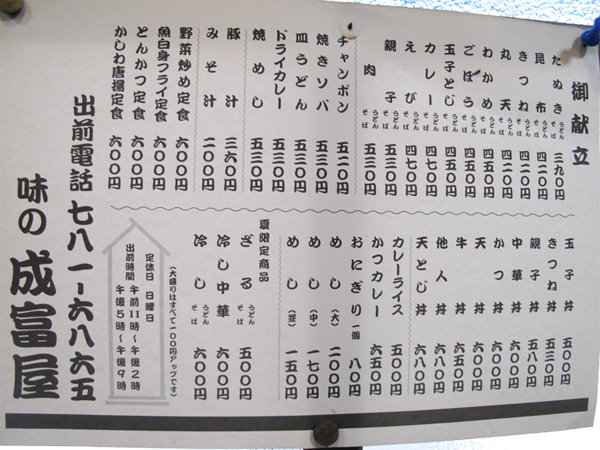 御献立
たぬき うどん そば 三九〇円
昆布 うどん そば 四二〇円
きつね うどん そば 四二〇円
丸天 うどん そば 四二〇円
わかめ うどん そば 四五〇円
ごぼう うどん そば 四五〇円
玉子とじ うどん そば 四五〇円
カレー うどん そば 四七〇円
えび うどん そば 四七〇円
親子 うどん そば 五三〇円
肉 うどん そば 五三〇円
チャンポン 五二〇円
焼きソバ 五三〇円
皿うどん 五三〇円
ドライカレー 五三〇円
焼めし 五三〇円
豚汁 三六〇円
みそ汁 二〇〇円
野菜炒め定食 六〇〇円
魚白身フライ定食 六〇〇円
とんかつ定食 六〇〇円
かしわ唐揚定食 六〇〇円
玉子丼 五〇〇円
きつね丼 五三〇円
親子丼 五八〇円
中華丼 六〇〇円
かつ丼 六〇〇円
天丼 六〇〇円
牛丼 六五〇円
他人丼 六八〇円
天とじ丼 六八〇円
カレーライス 五〇〇円
かつカレー 六五〇円
おにぎり 一個 八〇円
めし(大) 二〇〇円
めし(中) 一七〇円
めし(並) 一五〇円
夏限定商品
ざる うどん そば 五〇〇円
冷し中華 六〇〇円
冷し うどん そば 六〇〇円
(大盛りはすべて一〇〇円アップです)
定休日 日曜日
出前時間 午前11時〜午後2時
午後5時〜午後9時
出前電話 七八一-六八六五
味の成富屋